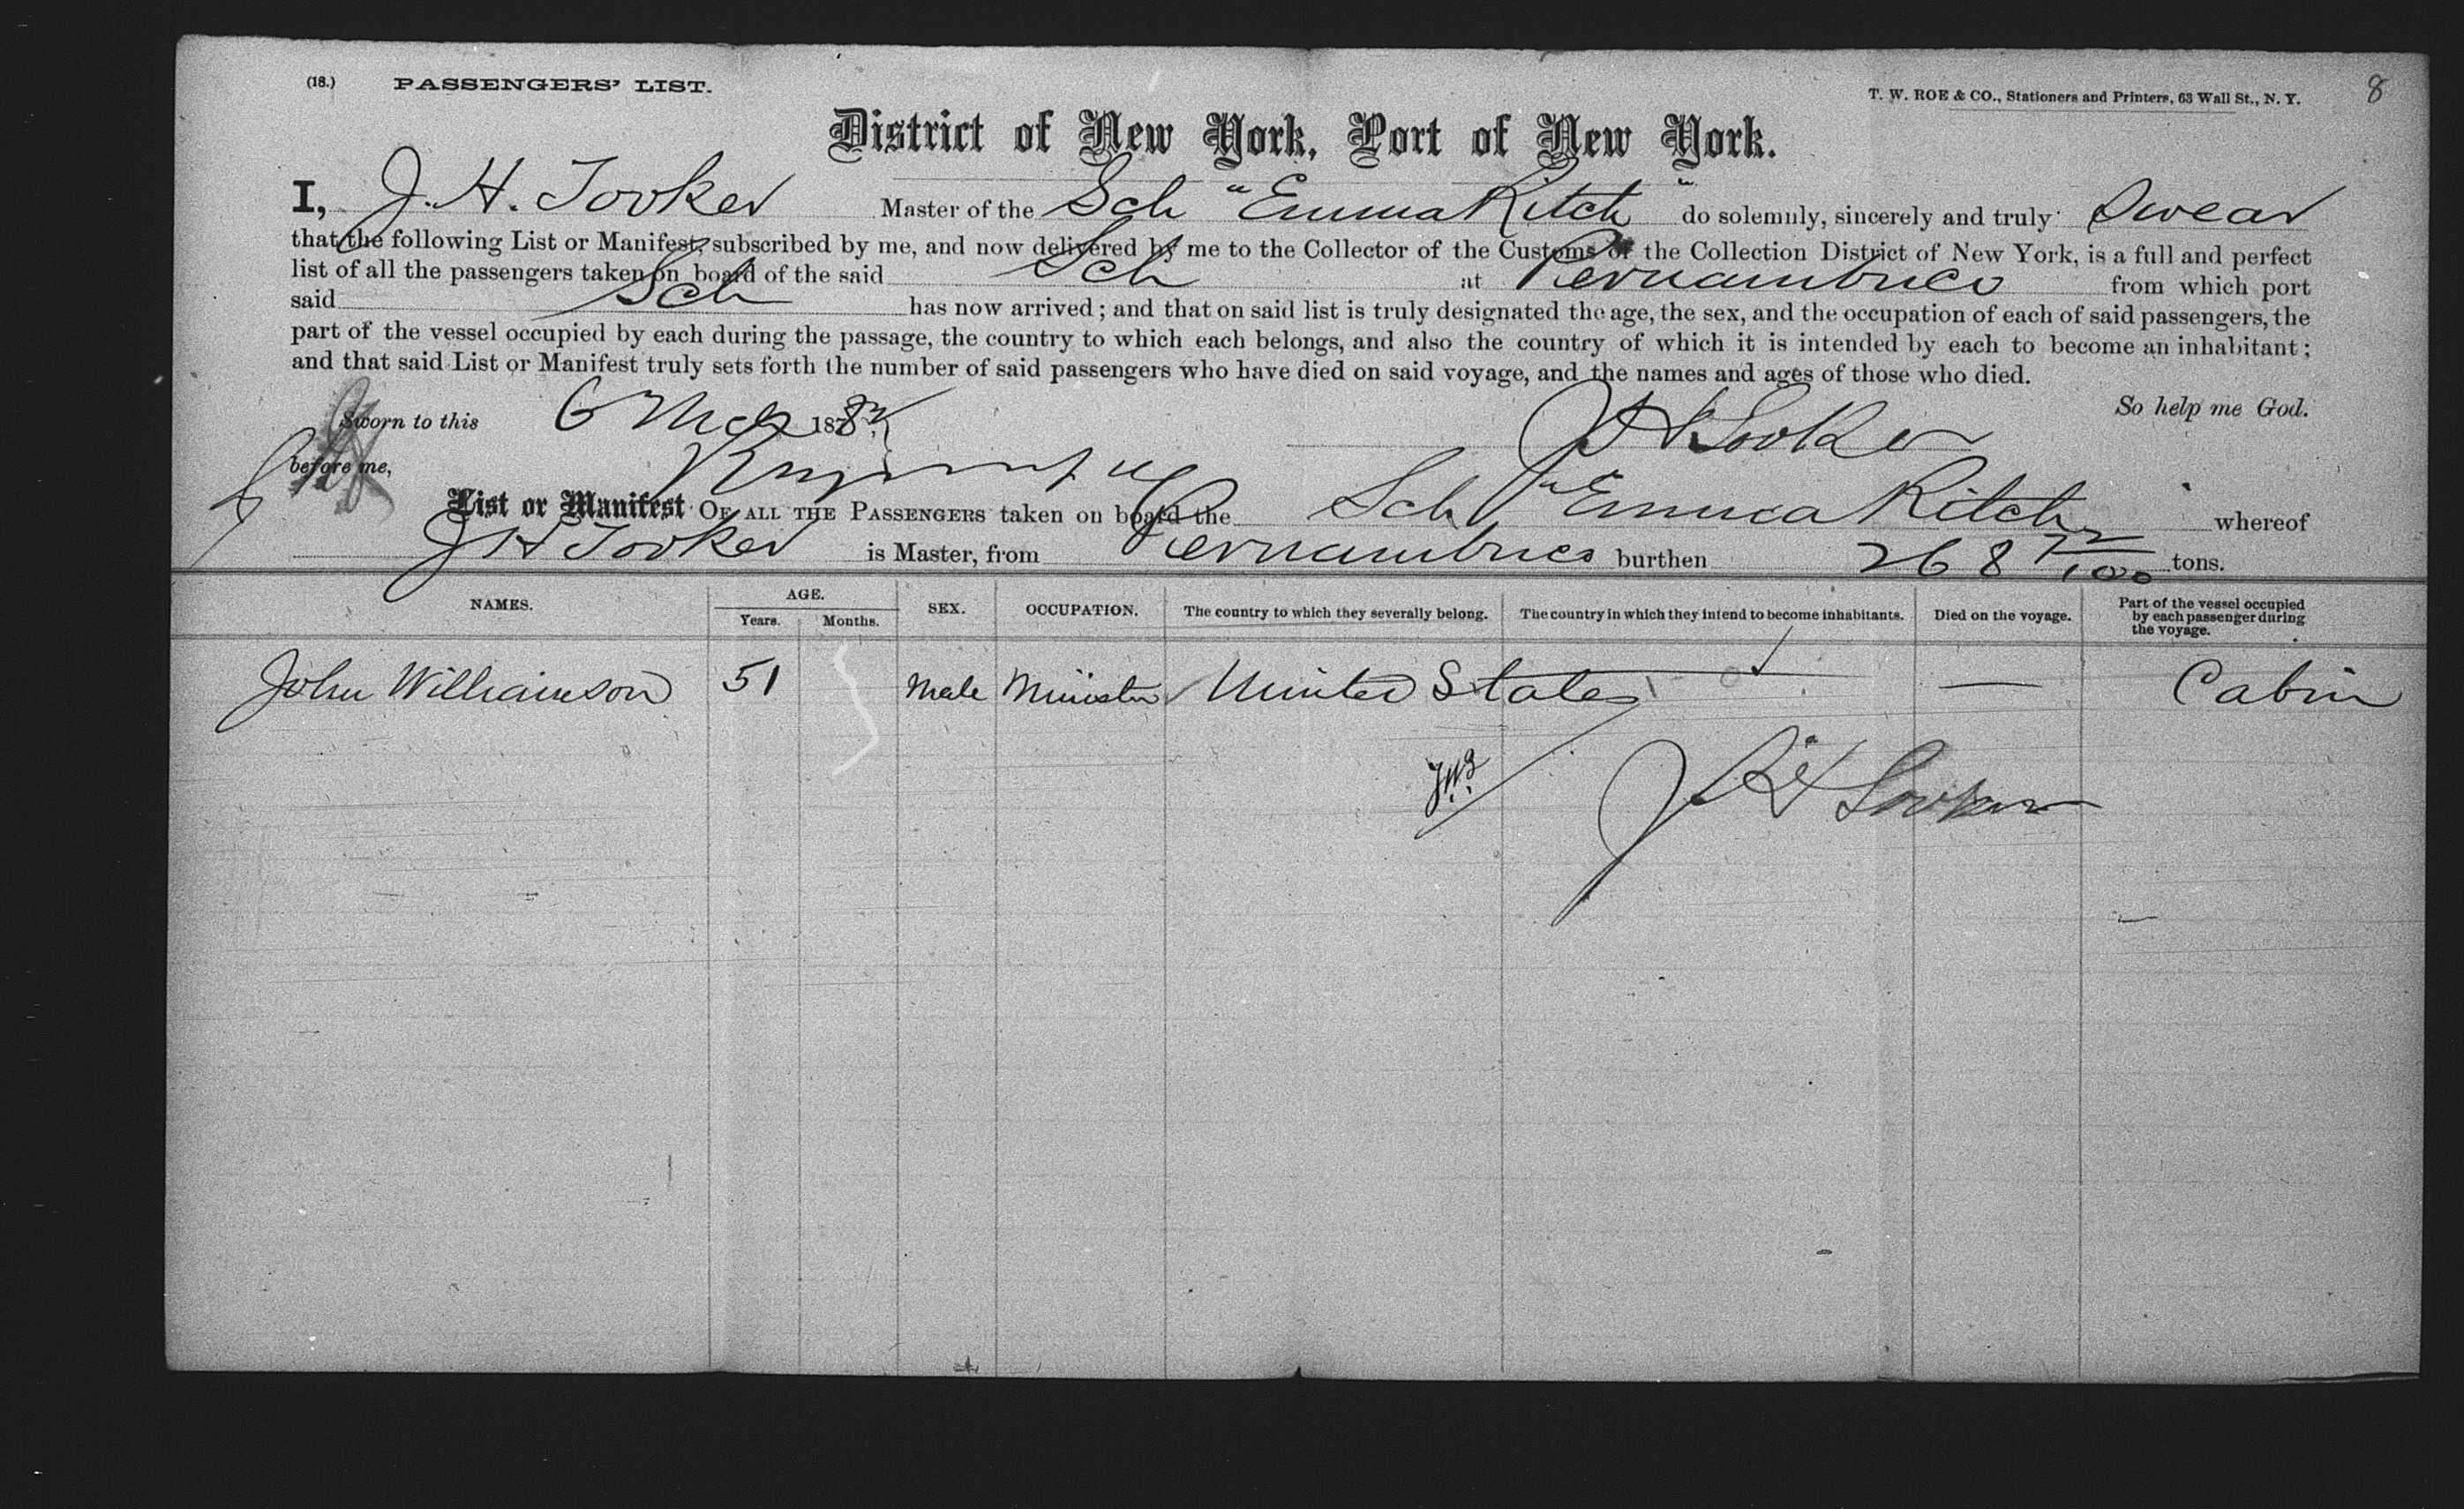 (18.) PASSENGERS' LIST. T. W. ROE & CO., Stationers and Printers, 63 Wall St., N. Y. 8
District of New York, Port of New York.
I, J. H. Tooker Master of the Sch "Emma Ritch" do solemnly, sincerely and truly Swear
that the following List or Manifest, subscribed by me, and now delivered by me to the Collector of the Customs of the Collection District of New York, is a full and perfect
list of all the passengers taken on board of the said Sch at Pernambuco from which port
said Sch has now arrived; and that on said list is truly designated the age, the sex, and the occupation of each of said passengers, the
part of the vessel occupied by each during the passage, the country to which each belongs, and also the country of which it is intended by each to become an inhabitant;
and that said List or Manifest truly sets forth the number of said passengers who have died on said voyage, and the names and ages of those who died.
So help me God.
Sworn to this 6 Mch 1882
J H Tooker
before me,
List or Manifest OF ALL THE PASSENGERS taken on board the Sch "Emma Ritch" whereof
J H Tooker is Master, from Pernambuco burthen 268 72/100 tons.
NAMES. AGE. Years. Months. SEX. OCCUPATION. The country to which they severally belong. The country in which they intend to become inhabitants. Died on the voyage. Part of the vessel occupied by each passenger during the voyage.
John Williamson 51 Male Minister United States — Cabin
J H Tooker